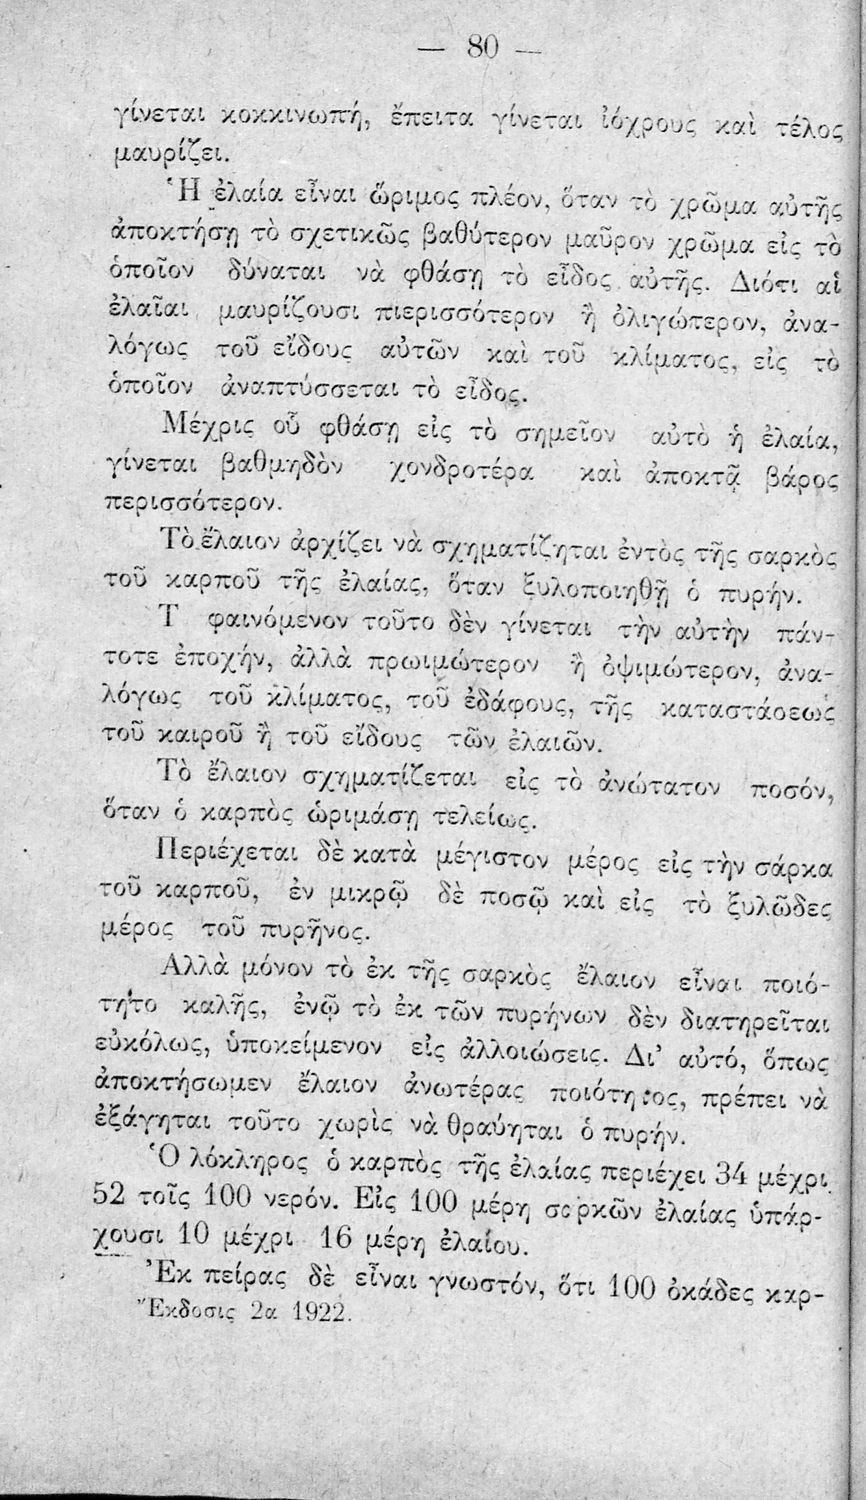 — 80 —
γίνεται κοκκινωπή, ἔπειτα γίνεται ἰόχρους καὶ τέλος
μαυρίζει.
Ἡ ἐλαία εἶναι ὥριμος πλέον, ὅταν τὸ χρῶμα αὐτῆς
ἀποκτήσῃ τὸ σχετικῶς βαθύτερον μαῦρον χρῶμα εἰς τὸ
ὁποῖον δύναται νὰ φθάσῃ τὸ εἶδος αὐτῆς. Διότι αἱ
ἐλαῖαι μαυρίζουσι πιερισσότερον ἢ ὀλιγώτερον, ἀνα-
λόγως τοῦ εἴδους αὐτῶν καὶ τοῦ κλίματος, εἰς τὸ
ὁποῖον ἀναπτύσσεται τὸ εἶδος.
Μέχρις οὗ φθάσῃ εἰς τὸ σημεῖον αὐτὸ ἡ ἐλαία,
γίνεται βαθμηδὸν χονδροτέρα καὶ ἀποκτᾷ βάρος
περισσότερον.
Τὸ ἔλαιον ἀρχίζει νὰ σχηματίζηται ἐντὸς τῆς σαρκὸς
τοῦ καρποῦ τῆς ἐλαίας, ὅταν ξυλοποιηθῇ ὁ πυρήν.
Τ φαινόμενον τοῦτο δὲν γίνεται τὴν αὐτὴν πάν-
τοτε ἐποχήν, ἀλλὰ πρωιμώτερον ἢ ὀψιμώτερον, ἀνα-
λόγως τοῦ κλίματος, τοῦ ἐδάφους, τῆς καταστάσεως
τοῦ καιροῦ ἢ τοῦ εἴδους τῶν ἐλαιῶν.
Τὸ ἔλαιον σχηματίζεται εἰς τὸ ἀνώτατον ποσόν,
ὅταν ὁ καρπὸς ὡριμάσῃ τελείως.
Περιέχεται δὲ κατὰ μέγιστον μέρος εἰς τὴν σάρκα
τοῦ καρποῦ, ἐν μικρῷ δὲ ποσῷ καὶ εἰς τὸ ξυλῶδες
μέρος τοῦ πυρῆνος.
Ἀλλὰ μόνον τὸ ἐκ τῆς σαρκὸς ἔλαιον εἶναι ποιό-
τητο καλῆς, ἐνῷ τὸ ἐκ τῶν πυρήνων δὲν διατηρεῖται
εὐκόλως, ὑποκείμενον εἰς ἀλλοιώσεις. Δι' αὐτό, ὅπως
ἀποκτήσωμεν ἔλαιον ἀνωτέρας ποιότητος, πρέπει νὰ
ἐξάγηται τοῦτο χωρὶς νὰ θραύηται ὁ πυρήν.
Ὁ λόκληρος ὁ καρπὸς τῆς ἐλαίας περιέχει 34 μέχρι
52 τοῖς 100 νερόν. Εἰς 100 μέρη σαρκῶν ἐλαίας ὑπάρ-
χουσι 10 μέχρι 16 μέρη ἐλαίου.
Ἐκ πείρας δὲ εἶναι γνωστόν, ὅτι 100 ὀκάδες καρ-
Ἔκδοσις 2α 1922.